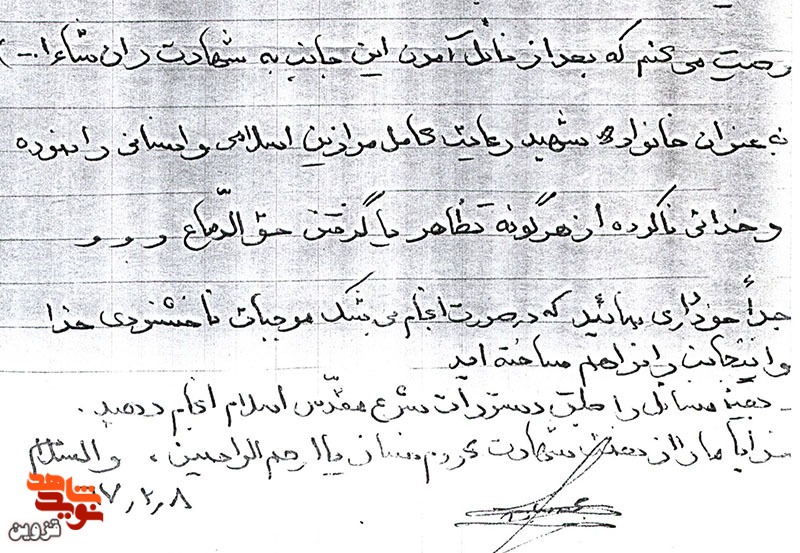 وصیت می‌کنم که بعد از نائل آمدن این جانب به شهادت (ان شاءا...)
به عنوان خانواده شهید رعایت کامل موازین اسلامی و انسانی را نموده
و خدائی ناکرده از هر گونه تظاهر یا گرفتن حق الدّماع و و و
جداً خودداری نمائید که در صورت انجام بی شک موجبات ناخشنودی خدا
و اینجانب را فراهم ساخته اید
ـ بقیه مسائل را طبق دستورات شرع مقدّس اسلام انجام دهید.
خدایا ما را از نعمت شهادت محروم مساز یا ارحم الراحمین، والسّلام
۷٫۲٫۸
نوید شاهد
قزوین